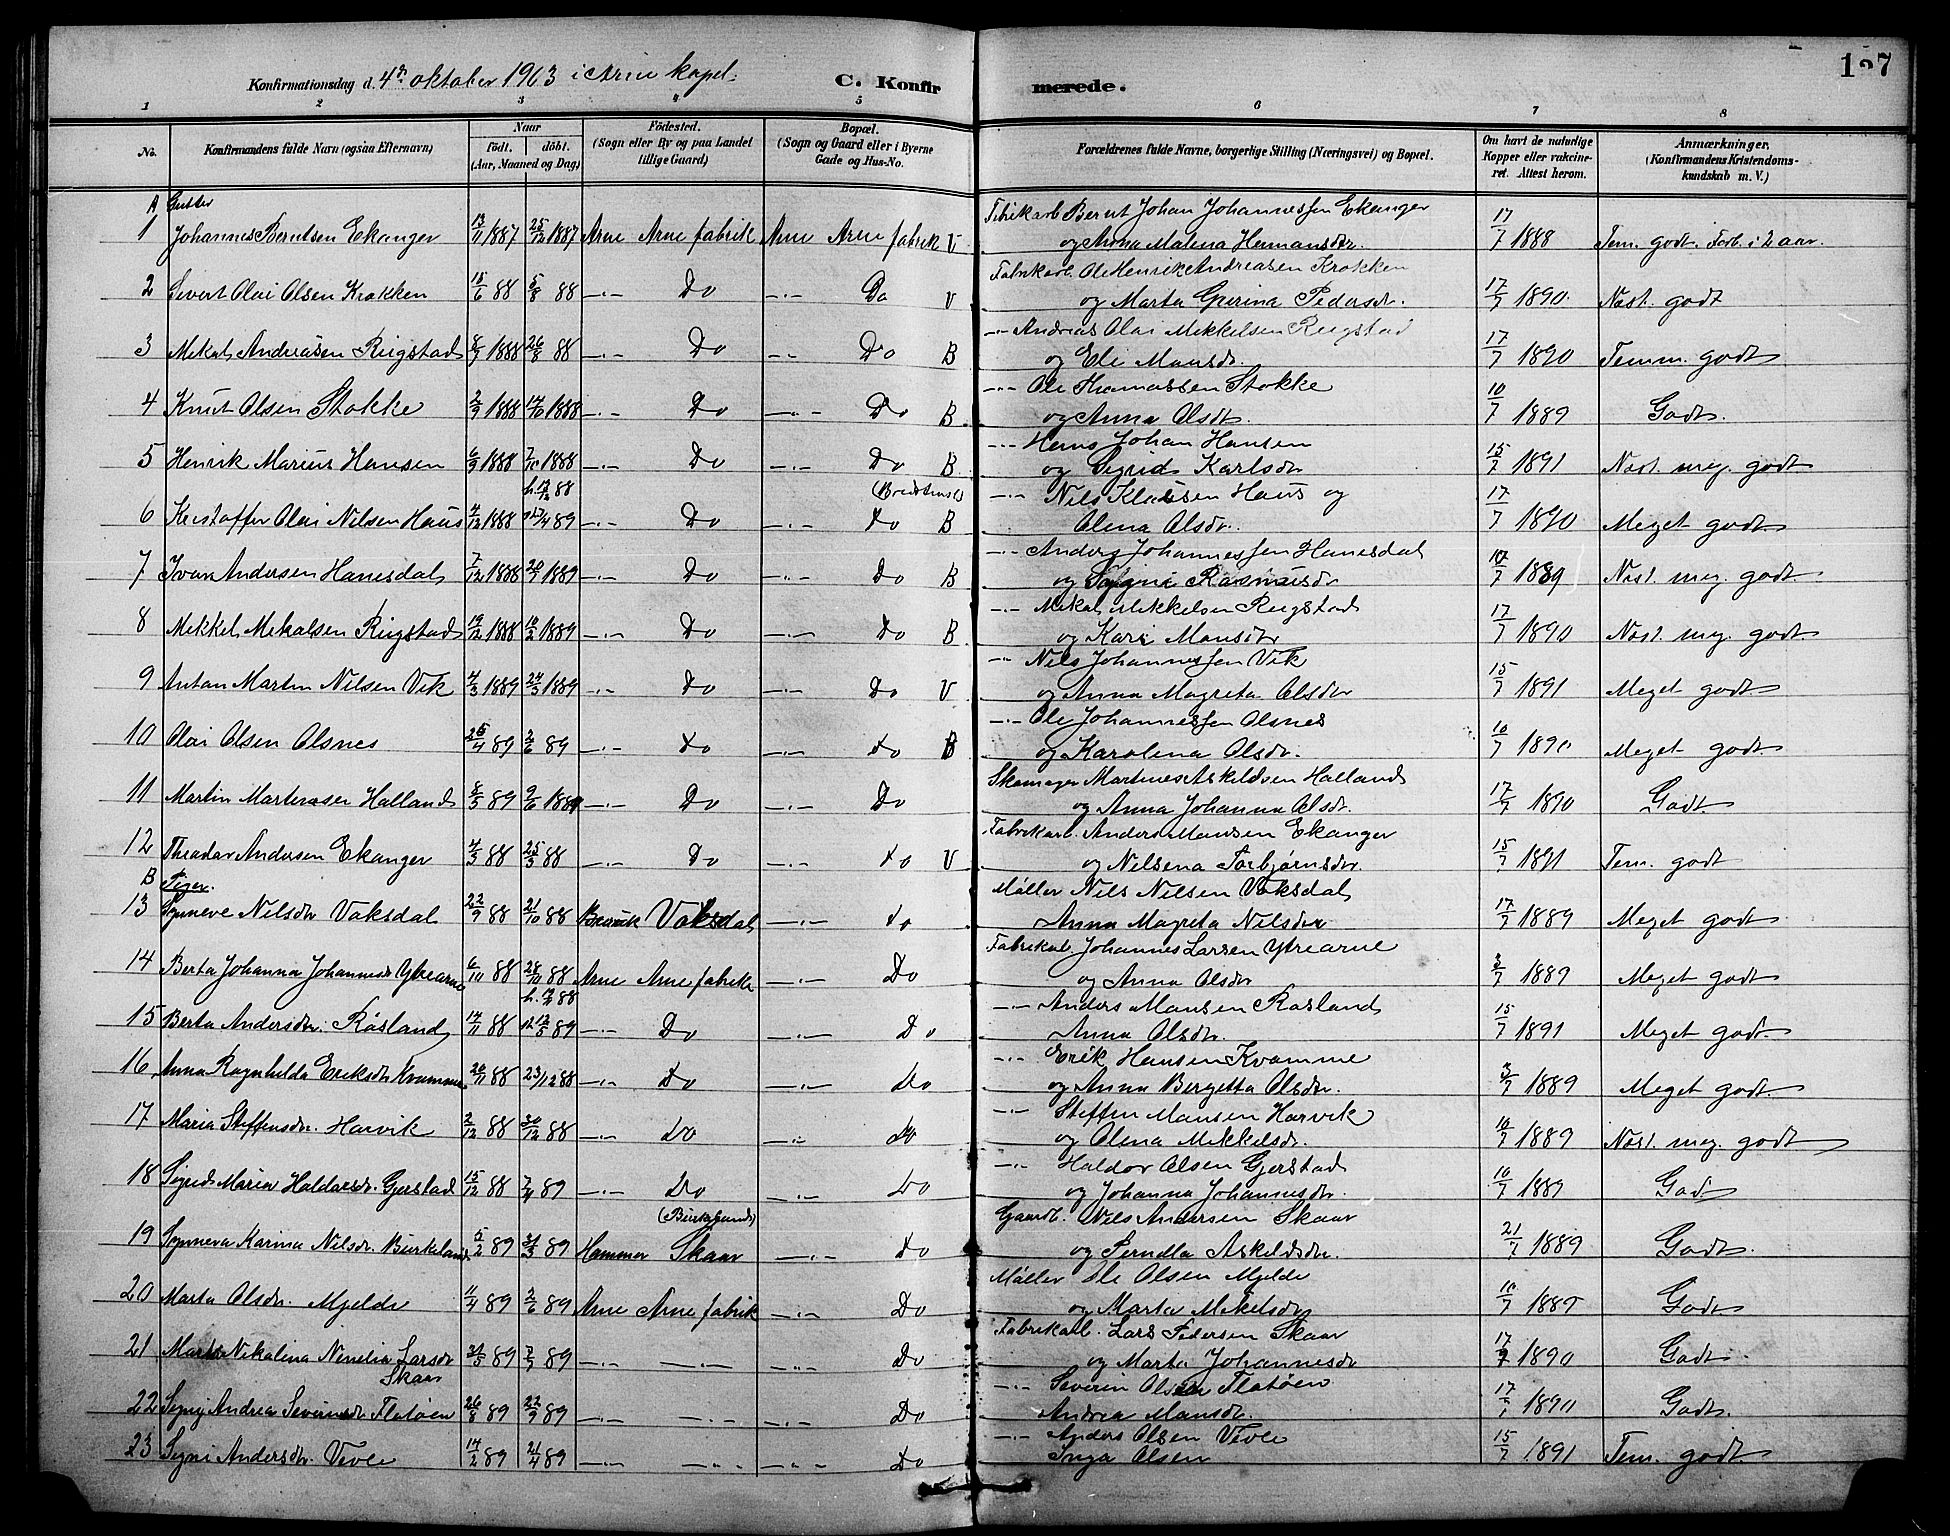 Konfirmationsdag d. 4de oktober 1903 i Arne kapel.
C. Konfirmerede.
1 2 3 4 5 6 7 8
No.
Konfirmandens fulde Navn (ogsaa Efternavn)
Naar
födt. döbt.
(Aar, Maaned og Dag)
Födested.
(Sogn eller By og paa Landet tillige Gaard)
Bopæl.
(Sogn og Gaard eller i Byerne Gade og Hus-No.
Forældrenes fulde Navne, borgerlige Stilling (Næringsvei) og Bopæl.
Om havt de naturlige Kopper eller vakcineret. Attest herom.
Anmærkninger.
(Konfirmandens Kristendomskundskab m. V.)
A Gutter
1 Johannes Berntsen Ekanger 13/11 1887 25/12 1887 Arne Arne fabrik Arne Arne fabrik V Fabrikarb. Bernt Johan Johannessen Ekanger 17/7 1888 Tem. godt. Forb. i 2 aar.
og Anna Malena Hermansdr.
2 Sivert Olai Olsen Krokken 15/6 88 5/8 88 —"— Do —"— Do V Fabrikarb. Ole Henrik Andreasen Krokken 17/7 1890 Næst. godt
og Marta Gurina Pedersdr.
3 Mikal Andreasen Rugstad 8/7 1888 26/8 88 —"— Do —"— Do B —"— Andreas Olai Mikkelsen Rugstad 17/7 1890 Temm. godt
og Eli Monsdr.
4 Knut Olsen Stokke 2/9 1888 14/10 1888 —"— Do —"— Do B —"— Ole Thomassen Stokke 10/7 1889 Godt.
og Anna Olsdr.
5 Henrik Marius Hansen 6/9 1888 7/10 1888 —"— Do —"— Do B —"— Hans Johan Hansen 15/7 1891 Næst. meg. godt
og Sigrid Karlsdr
6 Kristoffer Olai Nilsen Haus 4/12 1888 —"— Do —"— Do B —"— Nils Klausen Haus og 17/7 1890 Meget godt
Olina Olsdr.
7 Ivar Andersen Hanesdal 7/12 1888 1889 —"— Do —"— Do B —"— Anders Johannessen Hanesdal 10/7 1889 Næst. meg. godt
og Signi Rasmusdr
8 Mikkel Mikalsen Rugstad 14/12 1888 10/2 1889 —"— Do —"— Do B —"— Mikal Mikkelsen Rugstad 17/7 1890 Næst. meg. godt.
og Kari Monsdr
9 Anton Martin Nilsen Vik 4/3 1889 24/3 1889 —"— Do —"— Do V —"— Nils Johannessen Vik 15/7 1891 Meget godt
og Anna Magreta Olsdr
10 Olai Olsen Olsnes 25/4 89 2/6 89 —"— Do —"— Do B —"— Ole Johannessen Olsnes 10/7 1890 Meget godt.
og Karolina Olsdr.
11 Martin Martinasen Halland 8/5 89 9/6 1889 —"— Do —"— Do Skomager Martines Askildsen Halland 17/7 1890 Godt
og Anna Johanna Olsdr.
12 Theodor Andersen Ekanger 4/3 88 25/3 88 —"— Do —"— Do V Fabrikarb. Anders Monsen Ekanger 15/7 1891 Tem. godt
og Nilsena Torbjørnsdr.
B Piger.
13 Synneve Nilsdr Vaksdal 22/9 88 21/10 88 Bruvik Vaksdal —"— Do Møller Nils Nilsen Vaksdal 17/7 1889 Meget godt
Anna Magreta Nilsdr
14 Berta Johanna Johannesdr Ytrearne 6/10 88 28/10 88 Arne Arne fabrik —"— Do Fabrikarb Johannes Larsen Ytrearne 3/7 1889 Meget godt
og Anna Olsdr
15 Berta Andersdr. Røsland 14/11 88 12/5 89 —"— Do —"— Do —"— Anders Monsen Røsland 15/7 1891 Meget godt
Anna Olsdr.
16 Anna Ragnhilda Eriksdr Kvamme 20/11 88 23/12 88 —"— Do —"— Do —"— Erik Hansen Kvamme 3/7 1889 Meget godt
og Anna Bergetta Olsdr.
17 Maria Steffensdr. Harvik 2/12 88 30/12 88 —"— Do —"— Do —"— Steffen Monsen Harvik 10/7 1889 Næst. meg. godt
og Olina Mikkelsdr.
18 Sigrid Maria Haldorsdr. Gjerstad 15/12 88 7/4 89 —"— Do —"— Do —"— Haldor Olsen Gjerstad 10/7 1889 Godt
og Johanna Johannesdr.
19 Synneva Karina Nilsdr. Birkeland 5/2 89 31/3 89 Hammer Skaar —"— Do Gaardb. Nils Andersen Skaar 21/7 1889 Godt.
og Pernilla Askildsdr.
20 Marta Olsdr. Mjelde 11/4 89 2/6 89 Arne Arne fabrik —"— Do Møller Ole Olsen Mjelde 10/7 1889 Godt
og Marta Mikelsdr
21 Marta Nikolina Larsdr Skaar 31/5 89 7/7 89 —"— —"— Do Fabrikarb. Lars Pedersen Skaar 17/7 1890 Godt.
og Marta Johannesdr
22 Signy Andrea Severinsdr Flatøen 26/8 89 22/9 89 —"— —"— —"— Do —"— Severin Olsen Flatøen 17/7 1890 Godt.
Andrea Monsdr.
23 Signi Andersdr. Vevle 14/2 89 21/4 89 —"— —"— —"— Do —"— Anders Olsen Vevle 15/7 1891 Tem. godt
Inga Olsen